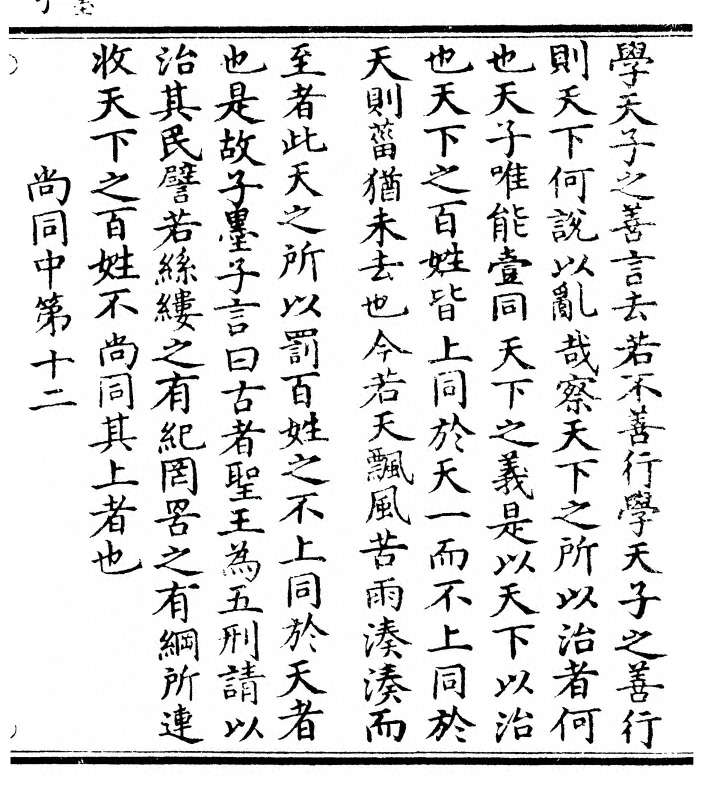 學天子之善言去若不善行學天子之善行
則天下何說以亂哉察天下之所以治者何
也天子唯能壹同天下之義是以天下以治
也天下之百姓皆上同於天一而不上同於
天則菑猶未去也今若天飄風苦雨湊湊而
至者此天之所以罰百姓之不上同於天者
也是故子墨子言曰古者聖王為五刑請以
治其民譬若絲縷之有紀罔罟之有綱所連
收天下之百姓不尚同其上者也
尚同中第十二